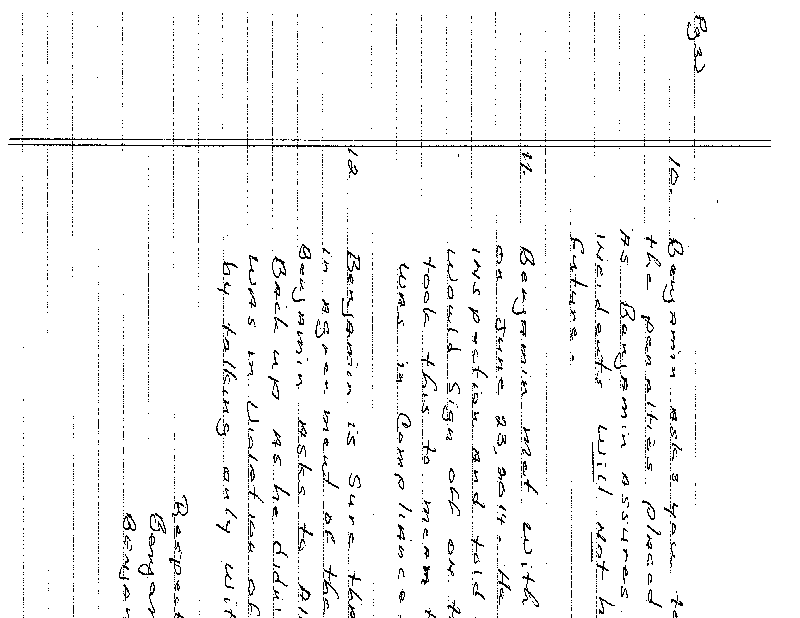 Pg 3
10. Benjamin asks you to
the penalties placed
As Benjamin assures
incidents will not b
future.
11. Benjamin met with
on June 23, 2014. He
inspection and told
would sign off on t
took this to mean t
was in compliance.
12. Benjamin is sure the
in agreement of the
Benjamin asks to Al
Back up as he didn
was in violation of
by talking only wit
Respect
Benjam
Benjam